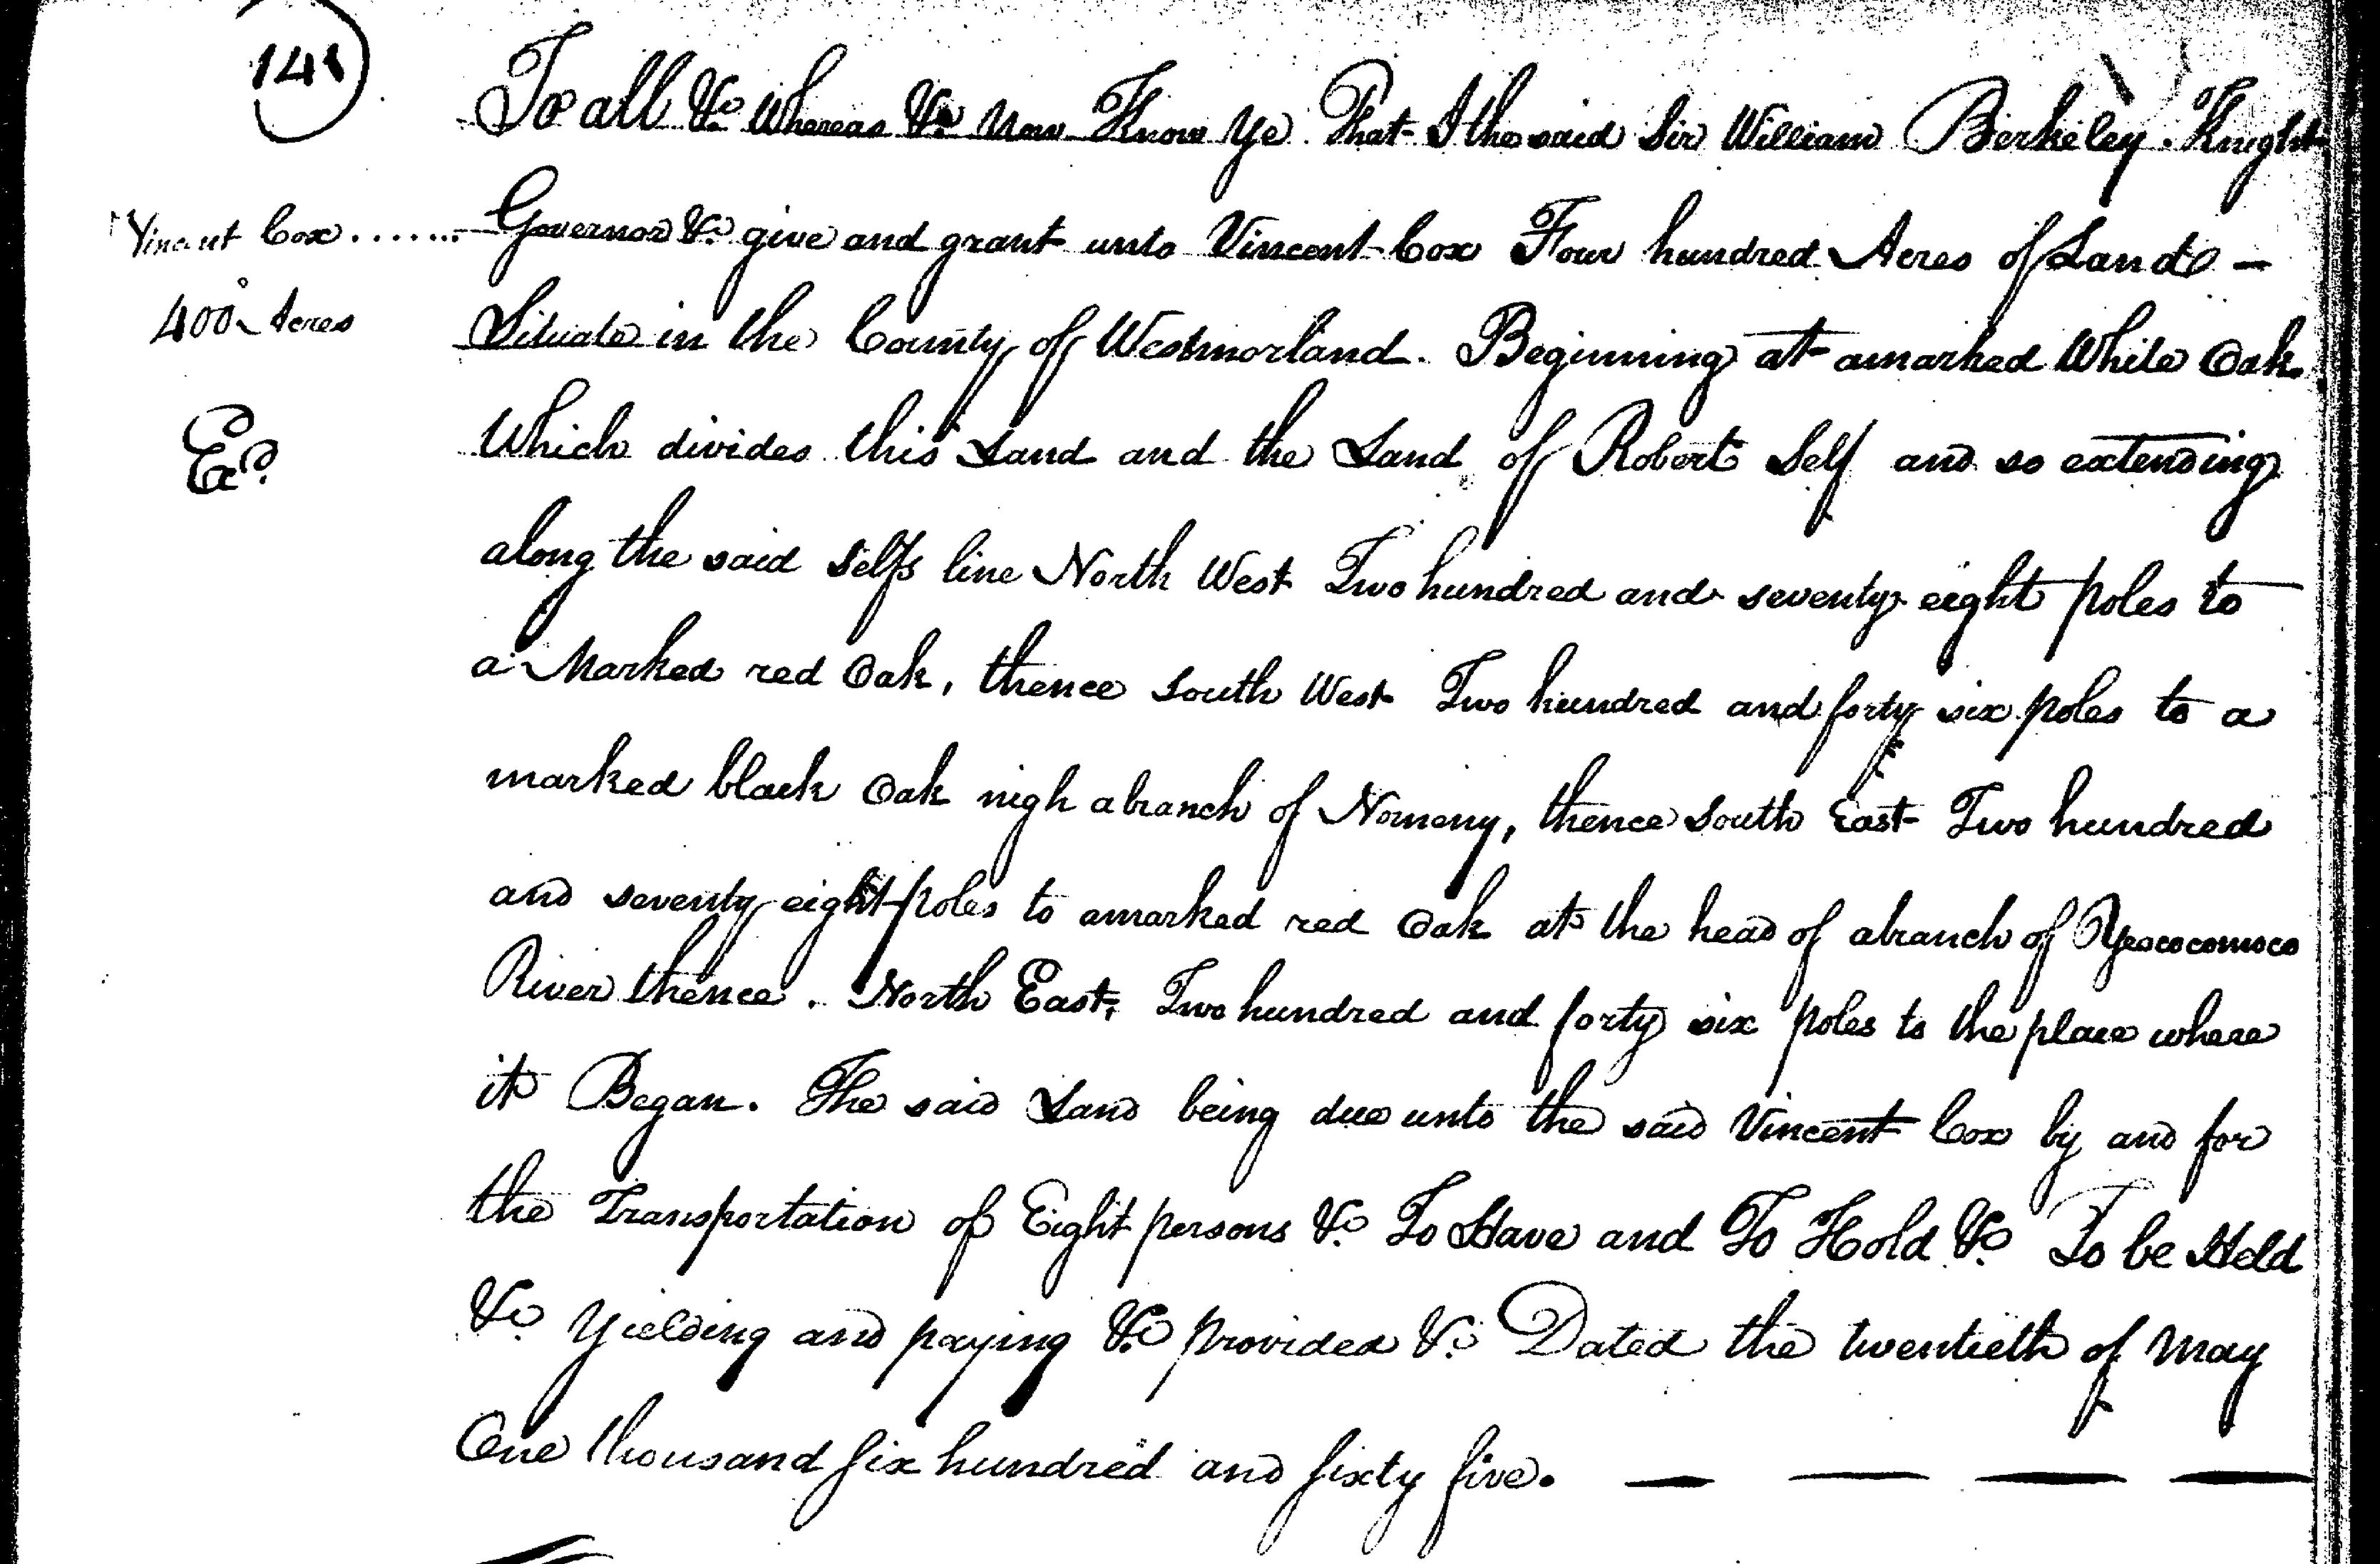 To all &c. Whereas &c. Now Know Ye That I the said Sir William Berkeley Knight
Vincent Cox ....... Governor &c. give and grant unto Vincent Cox Four hundred Acres of Land —
400 Acres Situate in the County of Westmorland. Beginning at a marked White Oak
Exd. Which divides this Land and the Land of Robert Self and so extending
along the said Selfs line North West Two hundred and seventy eight poles to
a Marked red Oak, thence South West Two hundred and forty six poles to a
marked black Oak nigh a branch of Nomeny, thence South East Two hundred
and seventy eight poles to a marked red Oak at the head of a branch of Yeocomoco
River thence. North East, Two hundred and forty six poles to the place where
it Began. The said Land being due unto the said Vincent Cox by and for
the Transportation of Eight persons &c. To Have and To Hold &c. To be Held
&c. Yielding and paying &c. provided &c. Dated the twentieth of May
One thousand six hundred and sixty five. — — — —